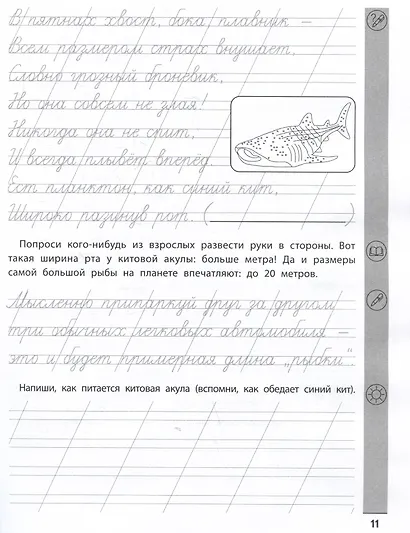 В пятнах хвост, бока, плавник –
Всем размером страх внушает,
Словно грозный броневик,
Но она совсем не злая!
Никогда она не спит,
И всегда плывёт вперёд.
Ест планктон, как синий кит,
Широко разинув рот. (                    )
Попроси кого-нибудь из взрослых развести руки в стороны. Вот
такая ширина рта у китовой акулы: больше метра! Да и размеры
самой большой рыбы на планете впечатляют: до 20 метров.
Мысленно припаркуй друг за другом
три обычных легковых автомобиля –
это и будет примерная длина „рыбки“.
Напиши, как питается китовая акула (вспомни, как обедает синий кит).
11